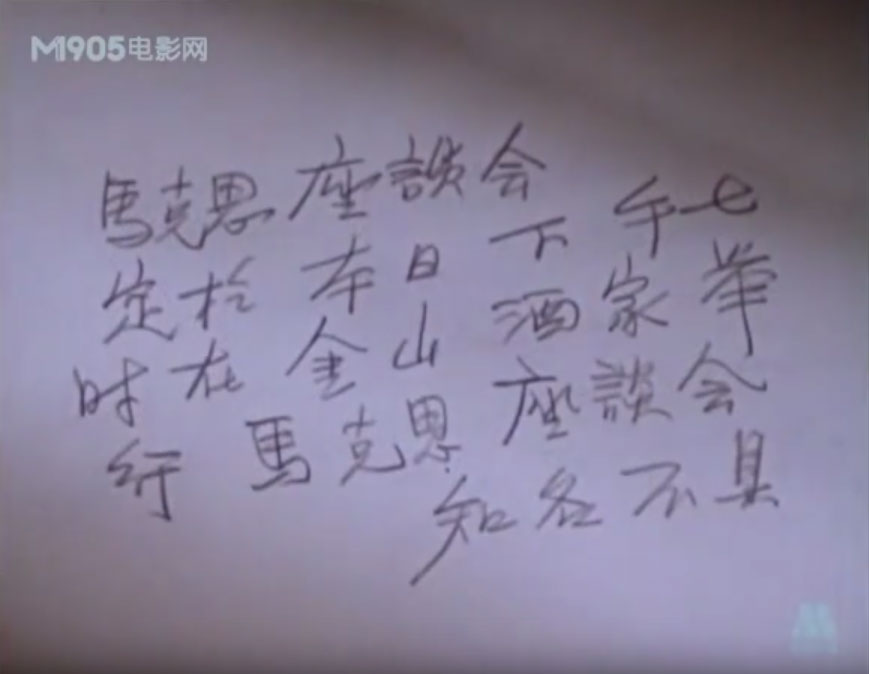 M1905电影网
馬克思座談会
定於本日下午七
时在金山酒家举
行馬克思座談会
知名不具